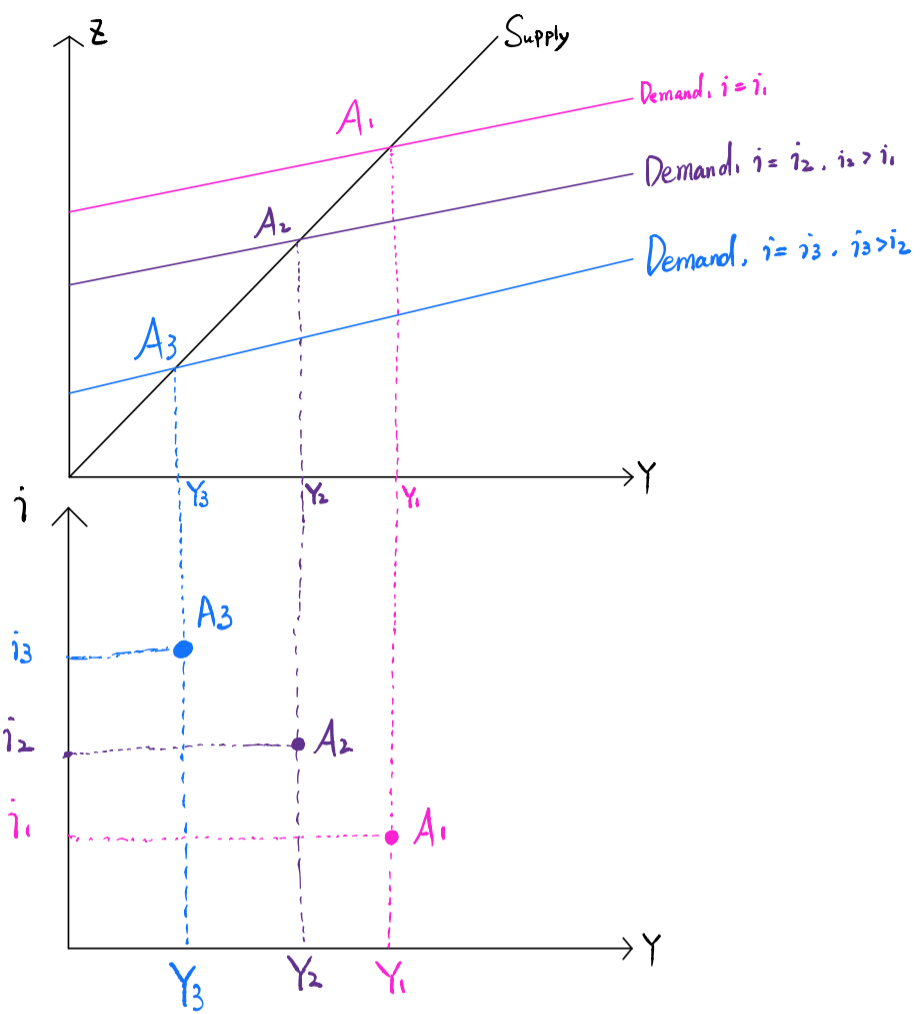 Z
Supply
Demand, i = i₁
A₁
Demand, i = i₂, i₂ > i₁
A₂
Demand, i = i3, i3 > i₂
A3
Y
Y3
Y₂
Y₁
i
A3
i3
i₂
A₂
i₁
A₁
Y
Y3
Y₂
Y₁